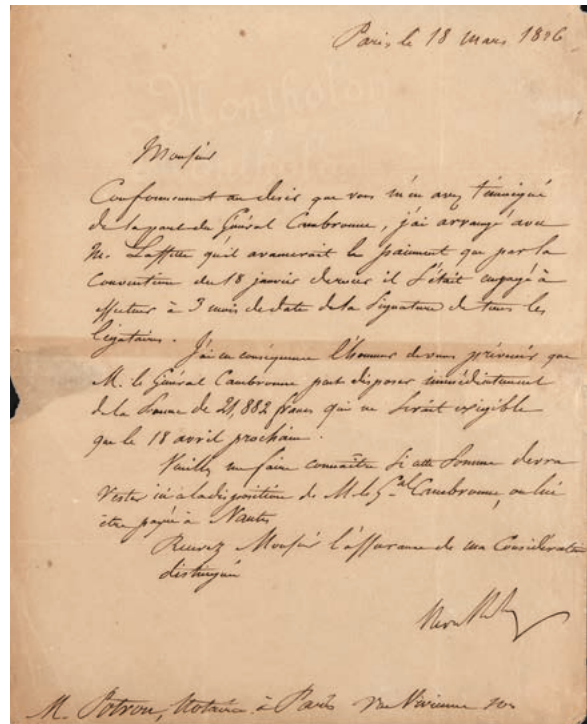 Paris le 18 mars 1826
Monsieur
Conformément au désir que vous m'en avez témoigné
de la part du Général Cambronne, j'ai arrangé avec
M. Laffitte qu'il avancerait le paiement que par la
Convention du 18 janvier dernier il s'était engagé à
effectuer à 3 mois de date de la Signature de tous les
légataires.
J'ai en conséquence l'honneur de vous prévenir que
M. le Général Cambronne peut disposer immédiatement
de la Somme de 21,882 francs qui ne Serait exigible
que le 18 avril prochain.
Veuillez me faire connaître Si cette Somme devra
rester ici à la disposition de M le Gal Cambronne, ou lui
être payée à Nantes
Recevez Monsieur l'assurance de ma Considération
distinguée
M. Potron, Notaire à Paris rue Vivienne